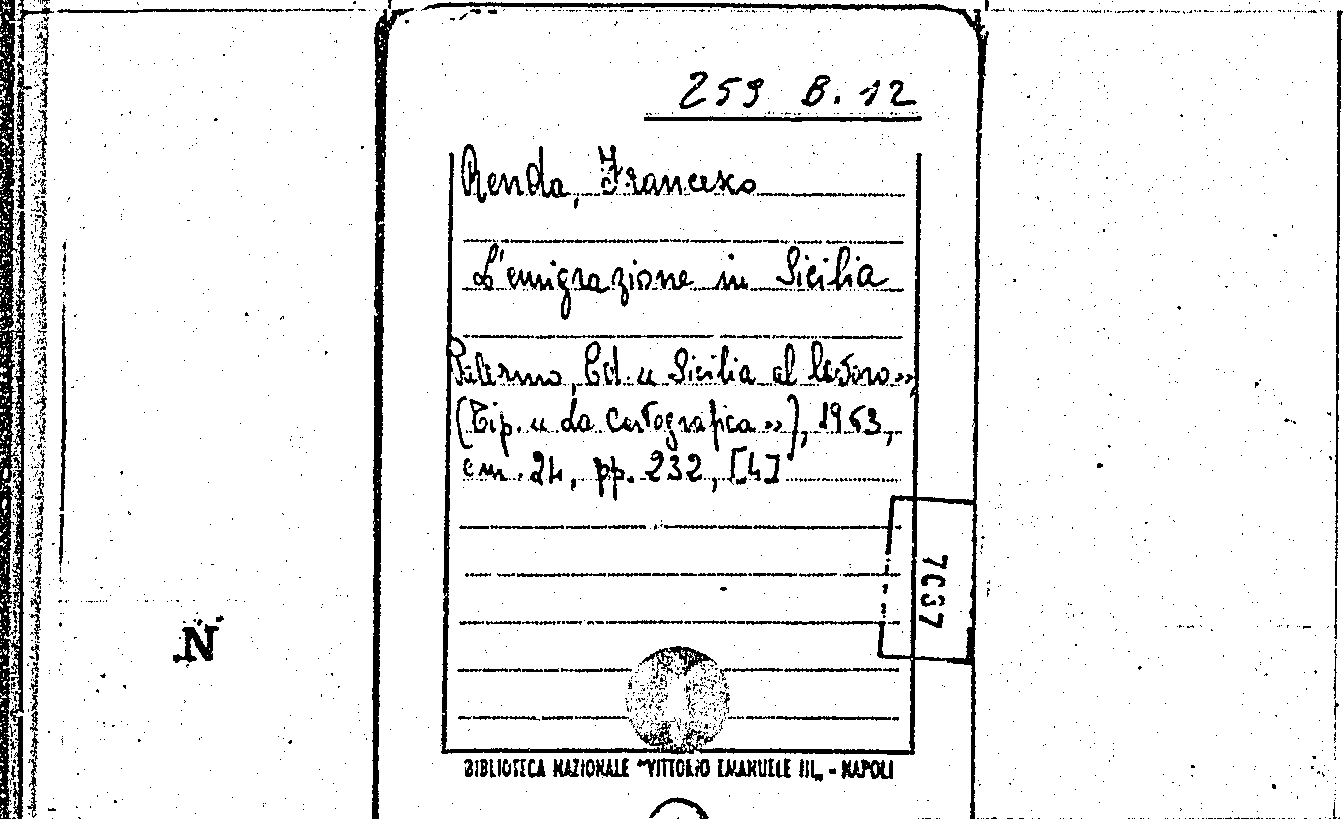 259 B. 12
Renda, Francesco
L'emigrazione in Sicilia
Palermo, Ed. « Sicilia al lavoro »,
(Tip. « La Cartografica »), 1963,
cm. 24, pp. 232, [4]
BIBLIOTECA NAZIONALE "VITTORIO EMANUELE III„ - NAPOLI
N